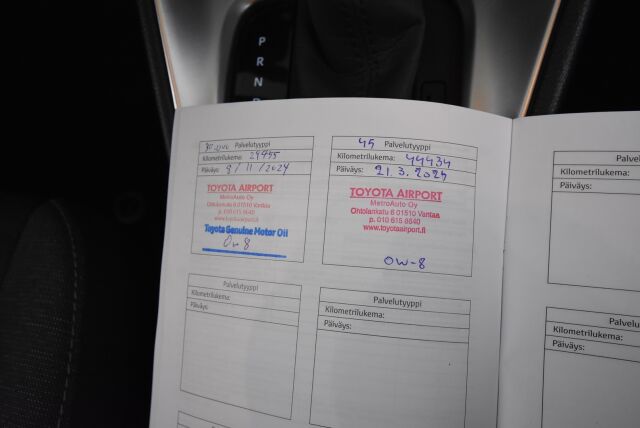 P
R
N
Palvelutyyppi
Kilometrilukema: 29455
Päiväys: 8 / 11 / 2024
TOYOTA AIRPORT
MetroAuto Oy
Ohtolankatu 6 01510 Vantaa
p. 010 615 8640
www.toyotaairport.fi
Toyota Genuine Motor Oil
0w8
45 Palvelutyyppi
Kilometrilukema: 44434
Päiväys: 21.3.2024
TOYOTA AIRPORT
MetroAuto Oy
Ohtolankatu 6 01510 Vantaa
p. 010 615 8640
www.toyotaairport.fi
0W-8
Palvelutyyppi
Kilometrilukema:
Päiväys:
Palvelutyyppi
Kilometrilukema:
Päiväys:
Kilometrilukema:
Päiväys:
Kilometrilukema:
Päiväys: